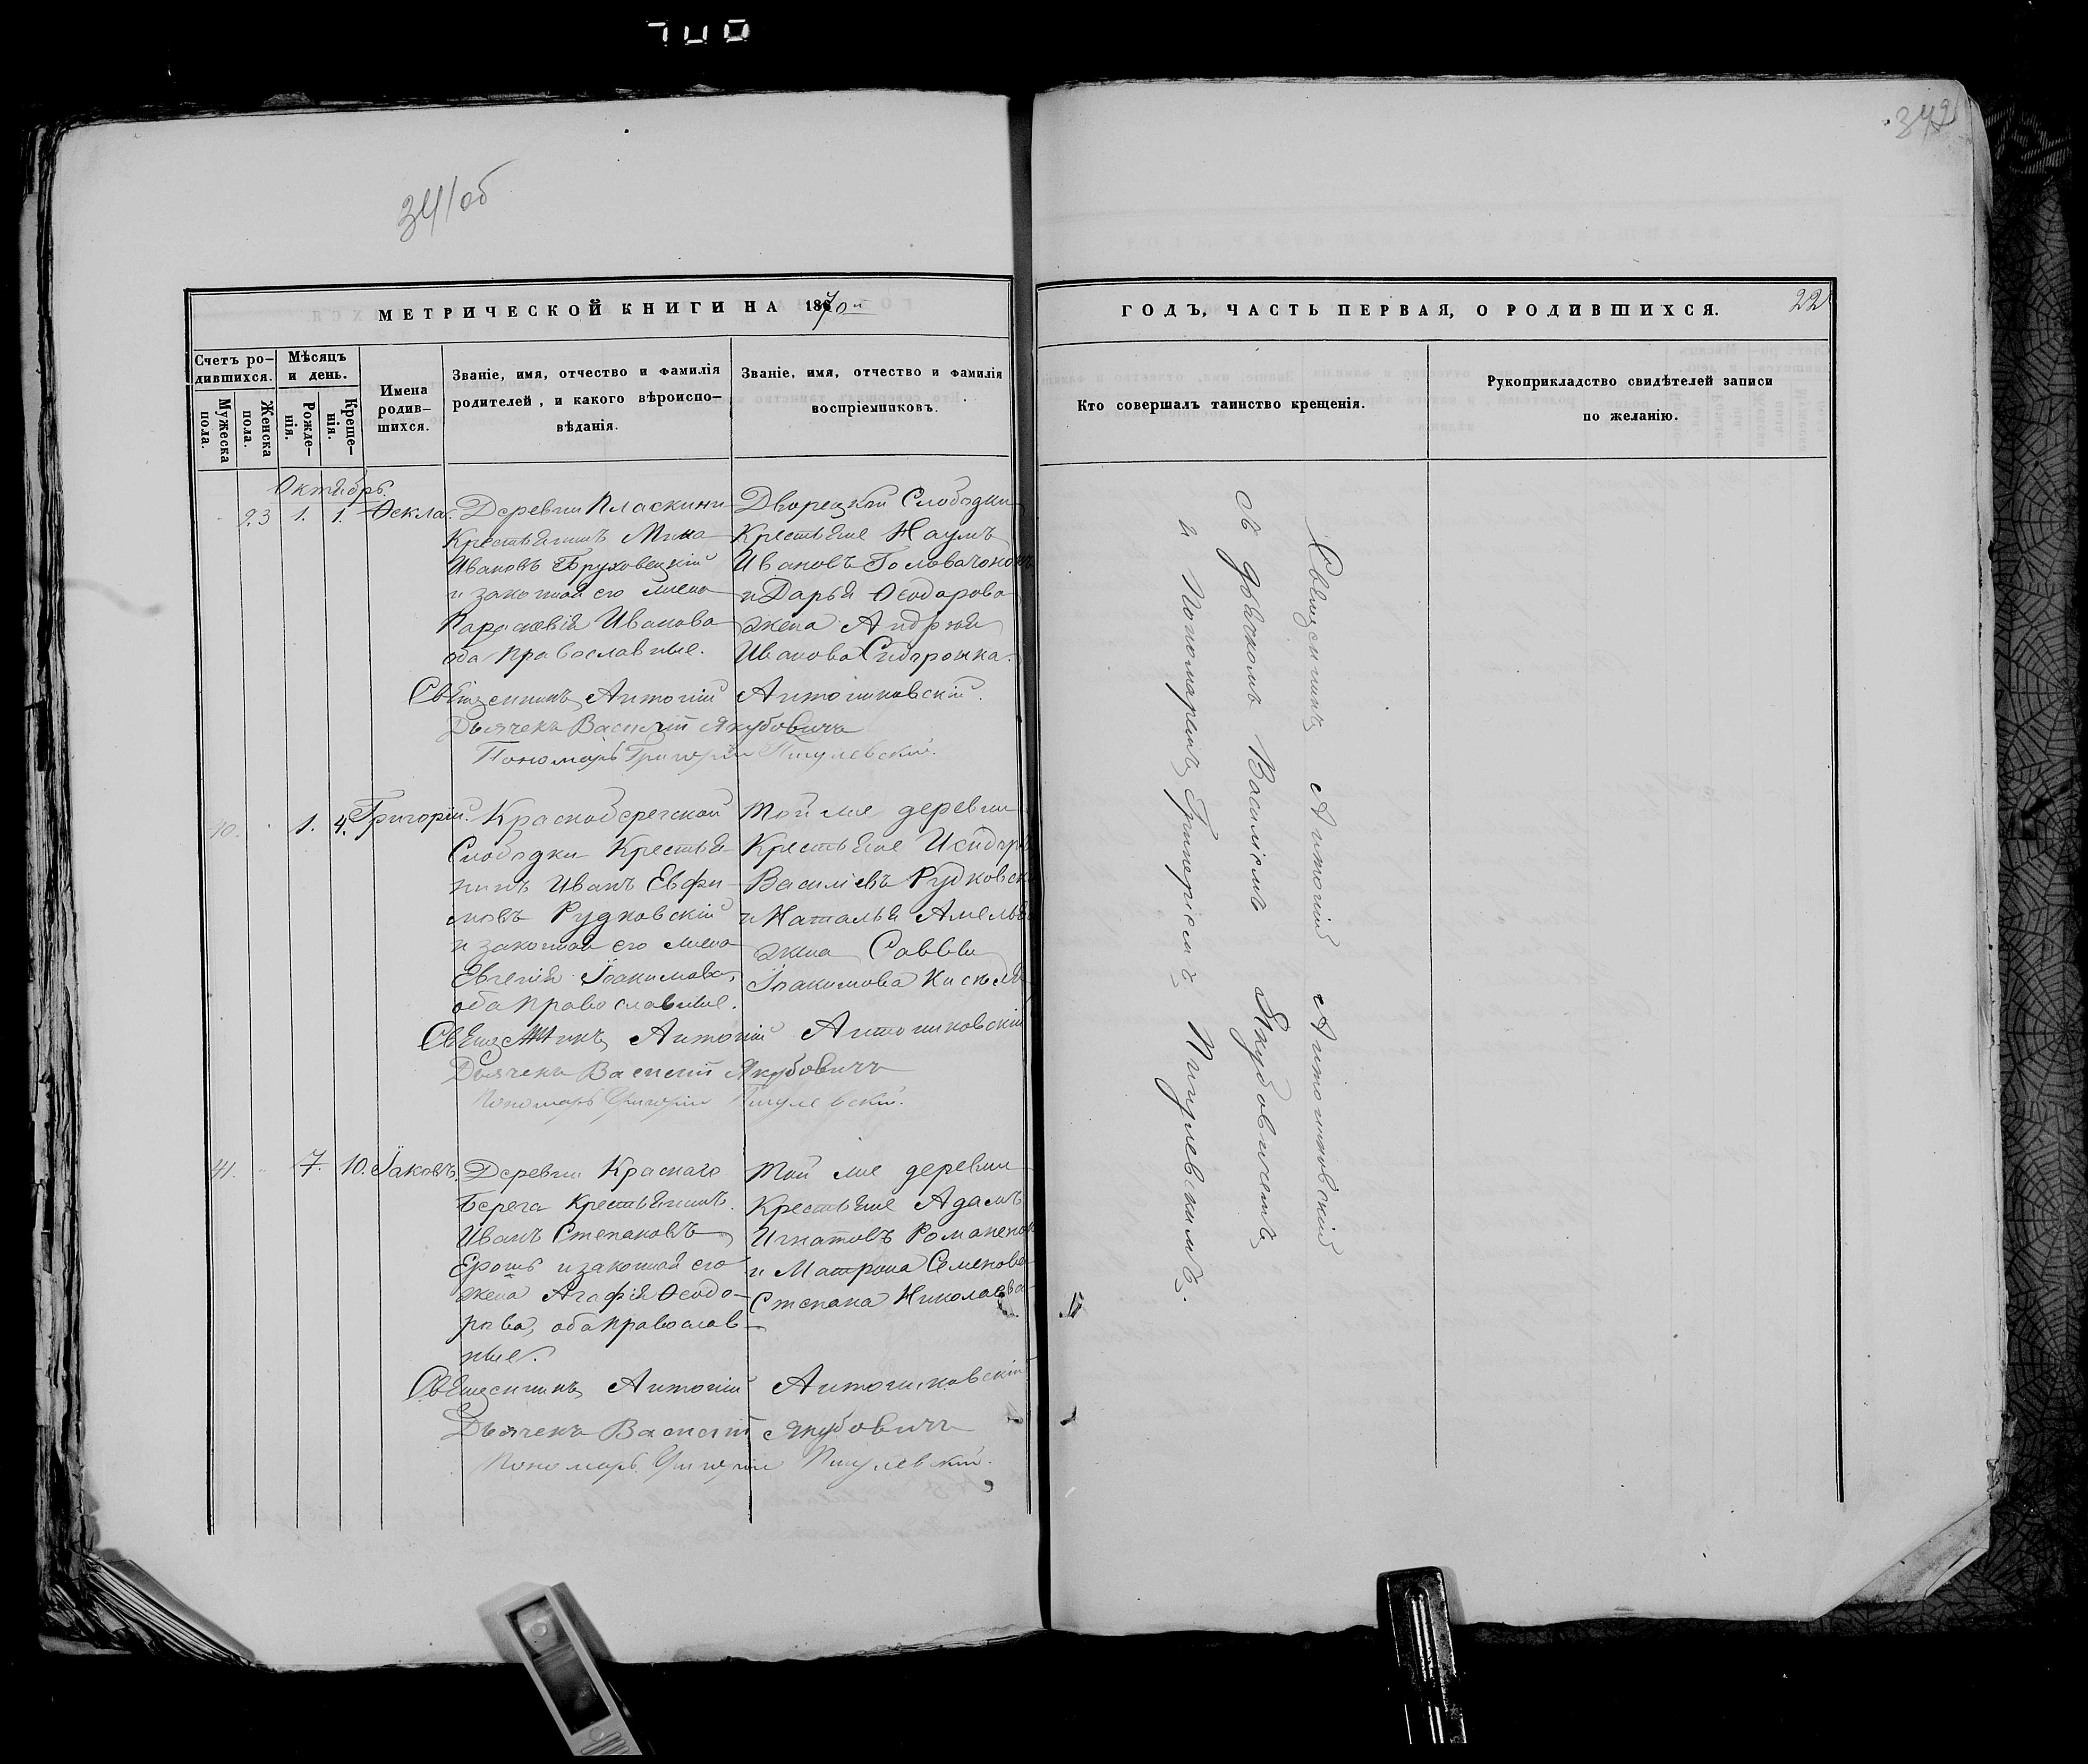 700
341об
342
МЕТРИЧЕСКОЙ КНИГИ НА 1870й
ГОДЪ, ЧАСТЬ ПЕРВАЯ, О РОДИВШИХСЯ.
22
Счетъ ро-
дившихся.
Мужеска
пола.
Женска
пола.
Мѣсяцъ
и день.
Рожде-
нія.
Креще-
нія.
Имена
родив-
шихся.
Званіе, имя, отчество и фамилія
родителей, и какого вѣроиспо-
вѣданія.
Званіе, имя, отчество и фамилія
воспріемниковъ.
Кто совершалъ таинство крещенія.
Рукоприкладство свидѣтелей записи
по желанію.
Октябрь.
23 1. 1. Ѳекла.
Деревни Пласкини
Крестьянинъ Мина
Ивановъ Бруховецкій
и законная его жена
Параскевія Иванова
оба православные.
Дворецкой Слободки
Крестьяне Наумъ
Ивановъ
и Дарья Ѳеодорова
жена Андрея
Иванова Сидоронка.
Священникъ Антоній Антониковскій.
Дьячекъ Василій Якубовичъ
Пономарь Григорій Пигулевскій.
40. 1. 4. Григорій.
Краснобережской
Слободки Крестья-
нинъ Иванъ Евфи-
мовъ Рудковскій
и законная его жена
Евгенія Іоакимова,
оба православные.
Той же деревни
Крестьяне
Василіевъ
и Наталья
жена Саввы
Іоакимова
Священникъ Антоній Антониковскій
Дьячекъ Василій Якубовичъ
Пономарь Григорій Пигулевскій.
41. 7. 10. Іаковъ.
Деревни Краснаго
Берега Крестьянинъ
Иванъ Степановъ
Ерошъ и законная его
жена Агафія Ѳеодо-
рова, оба православ-
ные.
Той же деревни
Крестьяне Адамъ
Игнатовъ
и Матрона Семенова
Степана Николаева
Священникъ Антоній Антониковскій
Дьячекъ Василій Якубовичъ
Пономарь Григорій Пигулевскій.
Священникъ Антоній Антониковскій
съ дьячкомъ Василіемъ Якубовичемъ
и Пономаремъ Григоріемъ Пигулевскимъ.